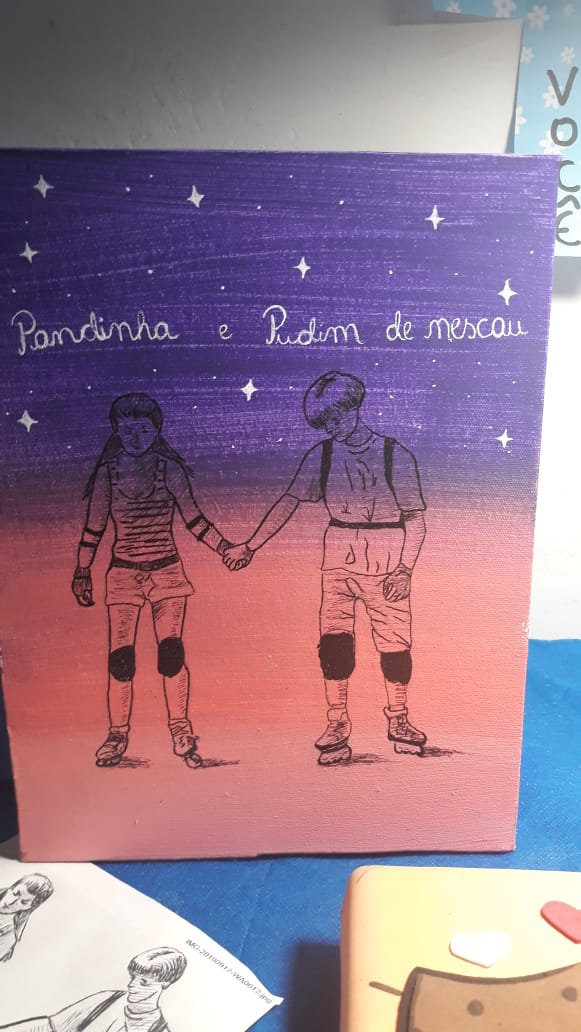 VOCÊ
Pandinha e Pudim de nescau
IMG-20190917-WA0012.jpg